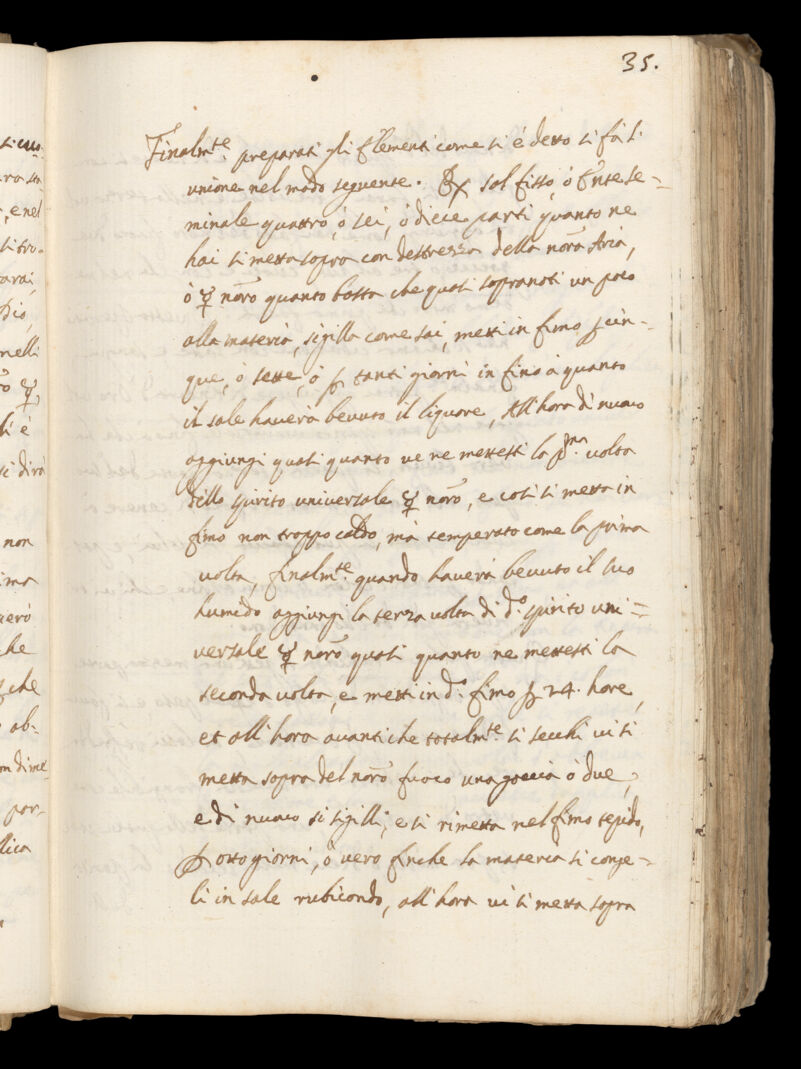 35.
Finalm.te preparati gli Elementi come si è detto si fà l'
unione nel modo seguente. ℞ sal fisso, ò Ente se=
minale quattro, ò sei, ò diece parti quanto ne
hai si metta sopra con destrezza della nōra Aria,
ò ☿ nōro quanto basta che quasi sopranoti un poco
alla materia, sigilla come sai, metti in fimo p cin-
que, ò sette, ò p tanti giorni in fino à quanto
il sale haverà bevuto il liquore, All'hora di nuovo
aggiungi quasi quanto ve ne mettesti la p.ma volta
dello spirito universale ☿ nōro, e così si metta in
fimo non troppo caldo, mà temperato come la prima
volta, finalm.te quando haverà bevuto il suo
humido aggiungi la terza volta di d.o spirito uni=
versale ☿ nōro quasi quanto ne mettesti la
seconda volta, e metti in d.o fimo p 24. hore,
et all'hora avanti che totalm.te si secchi vi si
metta sopra del nōro fuoco una goccia ò due,
e di nuovo si sigilli, e si rimetta nel fimo tepido,
p otto giorni, ò vero finche la materia si conge-
li in sale rubicondo, all'hora vi si metta sopra